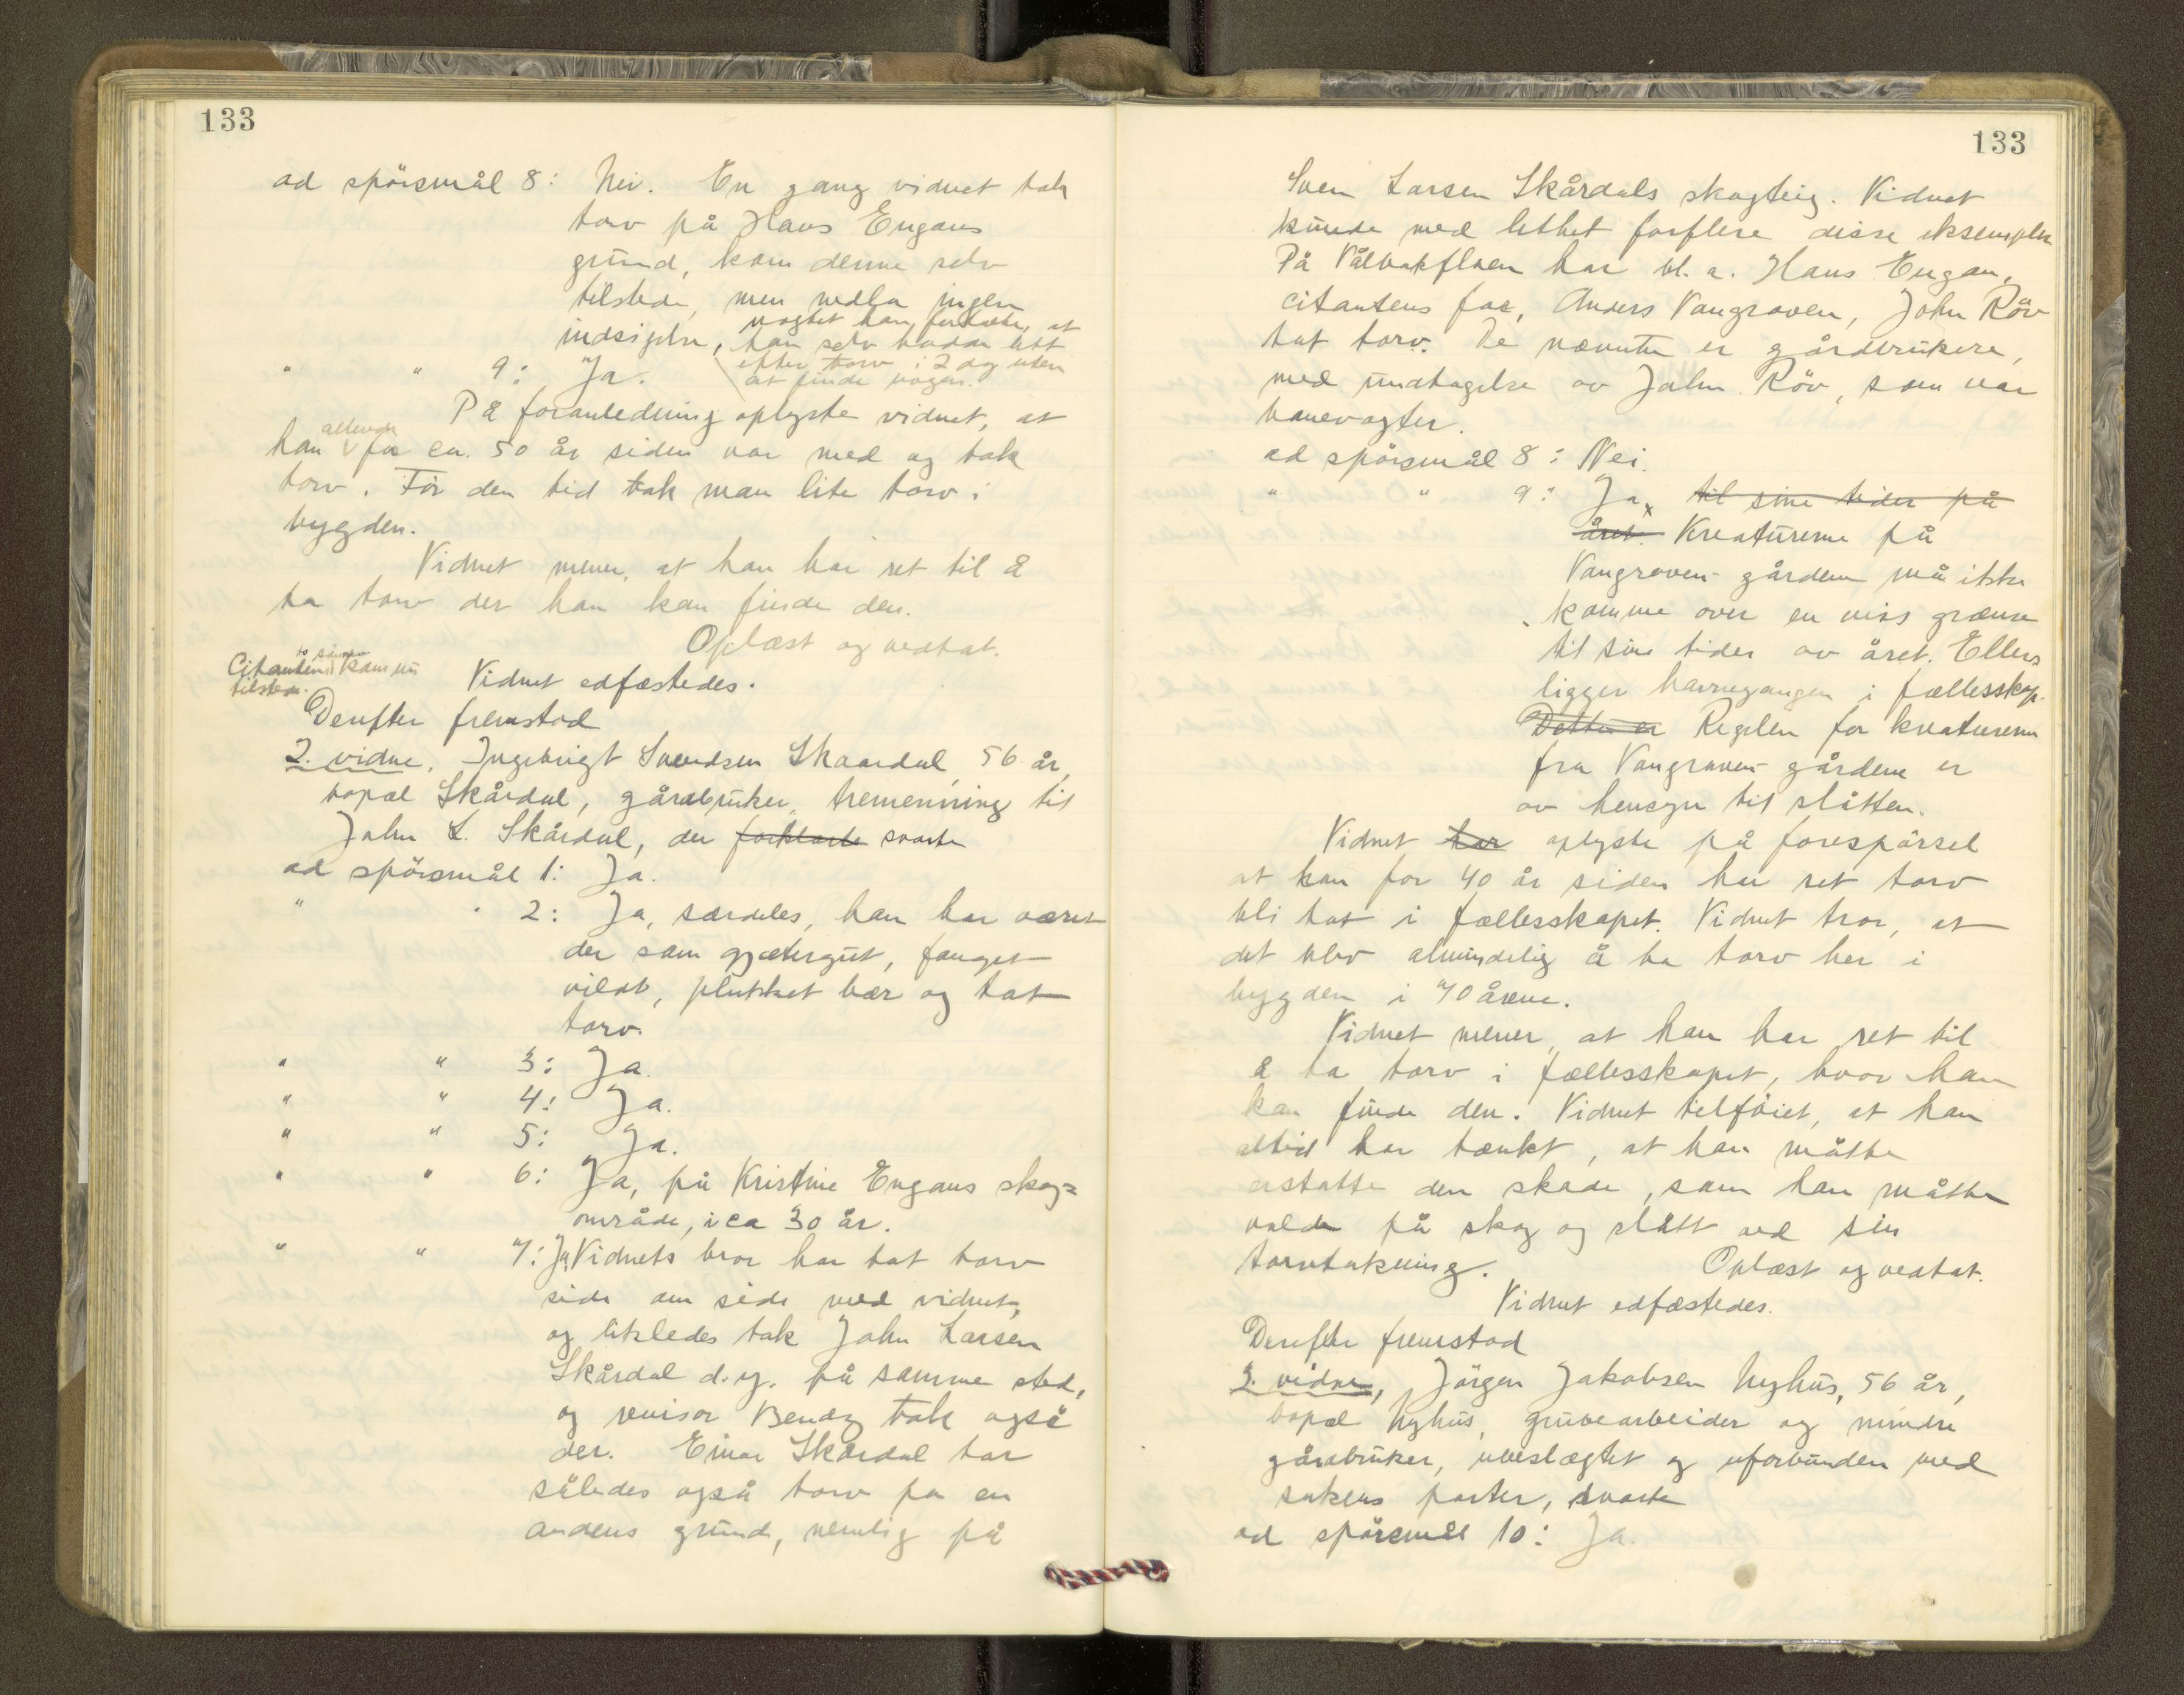 133
ad spörsmål 8: Nei. En gang vidnet tok
torv på Hans Engans
grund, kom denne selv
tilstede, men nedla ingen
indsigelse, uagtet han fortalte, at
han selv hadde lett
efter torv i 2 dag uten
at finde nogen.
" " 9: Ja.
På foranledning oplyste vidnet, at
han allerede for ca. 50 år siden var med og tok
torv. Før den tid tok man lite torv i
bygden.
Vidnet mener, at han har ret til å
ta torv der han kan finde den.
Oplæst og vedtat.
Citantens kom nu
tilstede.
Vidnet edfæstedes.
Derefter fremstod
2. vidne, Ingebrigt Svendsen Skaardal, 56 år,
bopæl Skårdal, gårdbruker, tremenning til
John L. Skårdal, der forklarte svarte
ad spörsmål 1: Ja.
" " 2: Ja, særdeles, han har været
der som gjætergut, fanget
vildt, plukket bær og tat
torv.
" " 3: Ja.
" " 4: Ja.
" " 5: Ja.
" " 6: Ja, på Kristine Engans skog=
område, i ca 30 år.
" " 7: Ja, Vidnets bror har tat torv
side om side med vidnet,
og likeledes tok John Larsen
Skårdal d.y. på samme sted,
og revisor Bendz tok også
der. Einar Skårdal har
således også torv på en
andens grund, nemlig på
133
Sven Larsen Skårdals skogteig. Vidnet
kunde med lethet forflere disse eksempler
På Vålbakfloen har bl. a. Hans Engan,
citantens far, Anders Vangraven, John Röv
tat torv. De nævnte er gårdbrukere,
med undtagelse av John Röv, som var
banevogter.
ad spörsmål 8: Nei.
" " 9: Ja, til sine tider på
året. Kreaturerne på
Vangraven-gårdene må ikke
komme over en viss grænse
til sine tider av året. Ellers
ligger havnegangen i fællesskap.
Dette er Regelen for kreaturerne
fra Vangraven-gårdene er
av hensyn til slåtten.
Vidnet har oplyste på forespörsel
at han for 40 år siden har set torv
bli tat i fællesskapet. Vidnet tror, at
det blev almindelig å ta torv her i
bygden i 70 årene.
Vidnet mener, at han har ret til
å ta torv i fællesskapet, hvor han
kan finde den. Vidnet tilföiet, at han
altid har tænkt, at han måtte
erstatte den skade, som han måtte
volde på skog og slått ved sin
torvtakning. Oplæst og vedtat.
Vidnet edfæstedes.
Derefter fremstod
3. vidne, Jörgen Jakobsen Nyhus, 56 år,
bopæl Nyhus, grubearbeider og mindre
gårdbruker, ubeslægtet og uforbunden med
sakens parter, svarte
ad spörsmål 10: Ja.